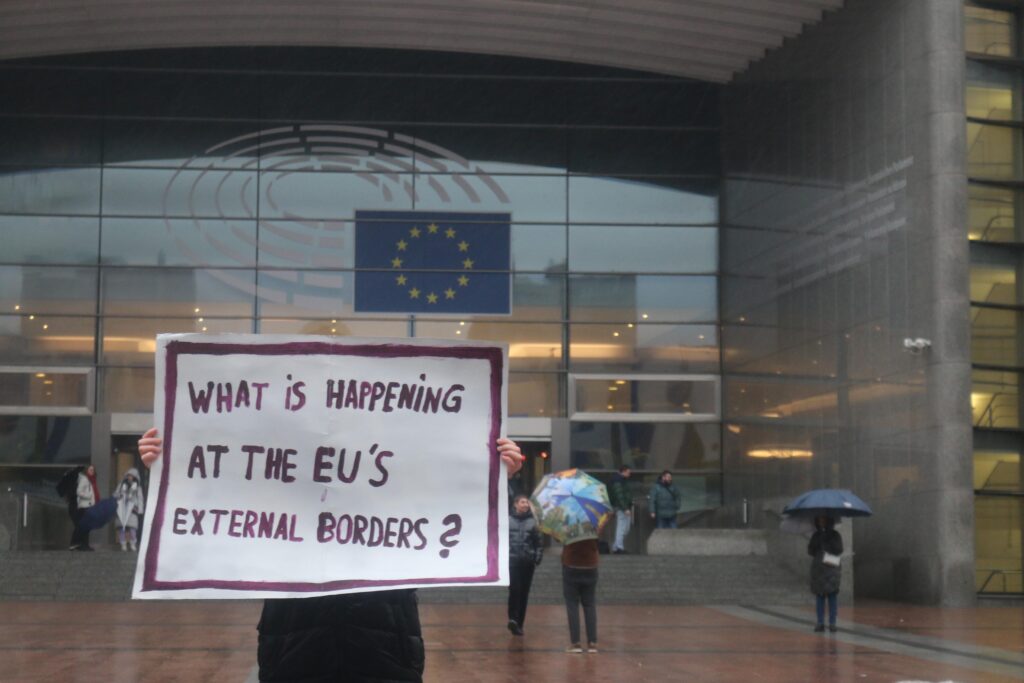 WHAT IS HAPPENING
AT THE EU'S
EXTERNAL BORDERS?